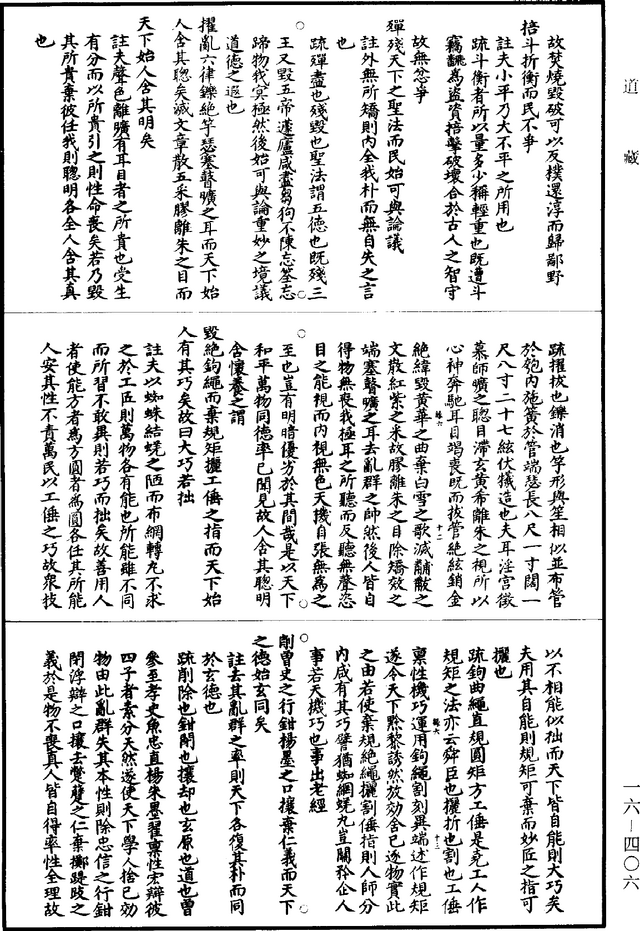 道藏
故焚燒毀破可以反樸還淳而歸鄙野
掊斗折衡而民不爭
註夫小平乃大不平之所用也
疏斗衡者所以量多少稱輕重也既遭斗
竊翻為盜資掊擊破壞合於古人之智守
故無忿爭
殫殘天下之聖法而民始可與論議
註外無所矯則內全我朴而無自失之言
也
疏殫盡也殘毀也聖法謂五德也既殘三
王又毀五帝蘧廬咸盡芻狗不陳忘筌忘
蹄物我冥極然後始可與論重妙之境議
道德之遐也
擢亂六律鑠絕竽瑟塞瞽曠之耳而天下始
人含其聰矣滅文章散五采膠離朱之目而
天下始人含其明矣
註夫聲色離曠有耳目者之所貴也受生
有分而以所貴引之則性命喪矣若乃毀
其所貴棄彼任我則聰明各全人含其真
也
疏擢拔也鑠消也竽形與笙相似並布管
於匏內施簧於管端瑟長八尺一寸闊一
尺八寸二十七絃伏犧造也夫耳淫宮徵
慕師曠之聰目滯玄黃希離朱之視所以
心神奔馳耳目竭喪既而拔管絕絃銷金
絕緯毀黃華之曲棄白雪之歌滅黼黻之
文散紅紫之采故膠離朱之目除矯效之
端塞瞽曠之耳去亂群之帥然後人皆自
得物無喪我極耳之所聽而反聽無聲恣
目之能視而內視無色天機自張無為之
至也豈有明暗優劣於其間哉是以天下
和平萬物同德率己聞見故人含其聰明
含懷養之謂
毀絕鉤繩而棄規矩攦工倕之指而天下始
人有其巧矣故曰大巧若拙
註夫以蜘蛛結蜣之陋而布網轉丸不求
之於工匠則萬物各有能也所能雖不同
而所習不敢異則若巧而拙矣故善用人
者使能方者為方圓者為圓各任其所能
人安其性不責萬民以工倕之巧故眾技
以不相能似拙而天下皆自能則大巧矣
夫用其自能則規矩可棄而妙匠之指可
攦也
疏鉤曲繩直規圓矩方工倕是堯工人作
規矩之法亦云舜臣也攦折也割也工倕
稟性機巧運用鉤繩割刻異端述作規矩
遂令天下黔黎誘然放效舍己逐物實此
之由若使棄規絕繩攦割倕指則人師分
內咸有其巧譬猶蜘網蜣丸豈關矜企人
事若天機巧也事出老經
削曾史之行鉗楊墨之口攘棄仁義而天下
之德始玄同矣
註去其亂群之率則天下各復其朴而同
於玄德也
疏削除也鉗閉也攘却也玄原也道也曾
參至孝史魚忠直楊朱墨翟稟性宏辯彼
四子者素分天然遂使天下學人捨己効
物由此亂群失其本性則除忠信之行鉗
閉浮辯之口攘去蹩躠之仁棄擲踶跂之
義於是物不喪真人皆自得率性全理故
絲六 十二
絲六 十三
一六—四〇六